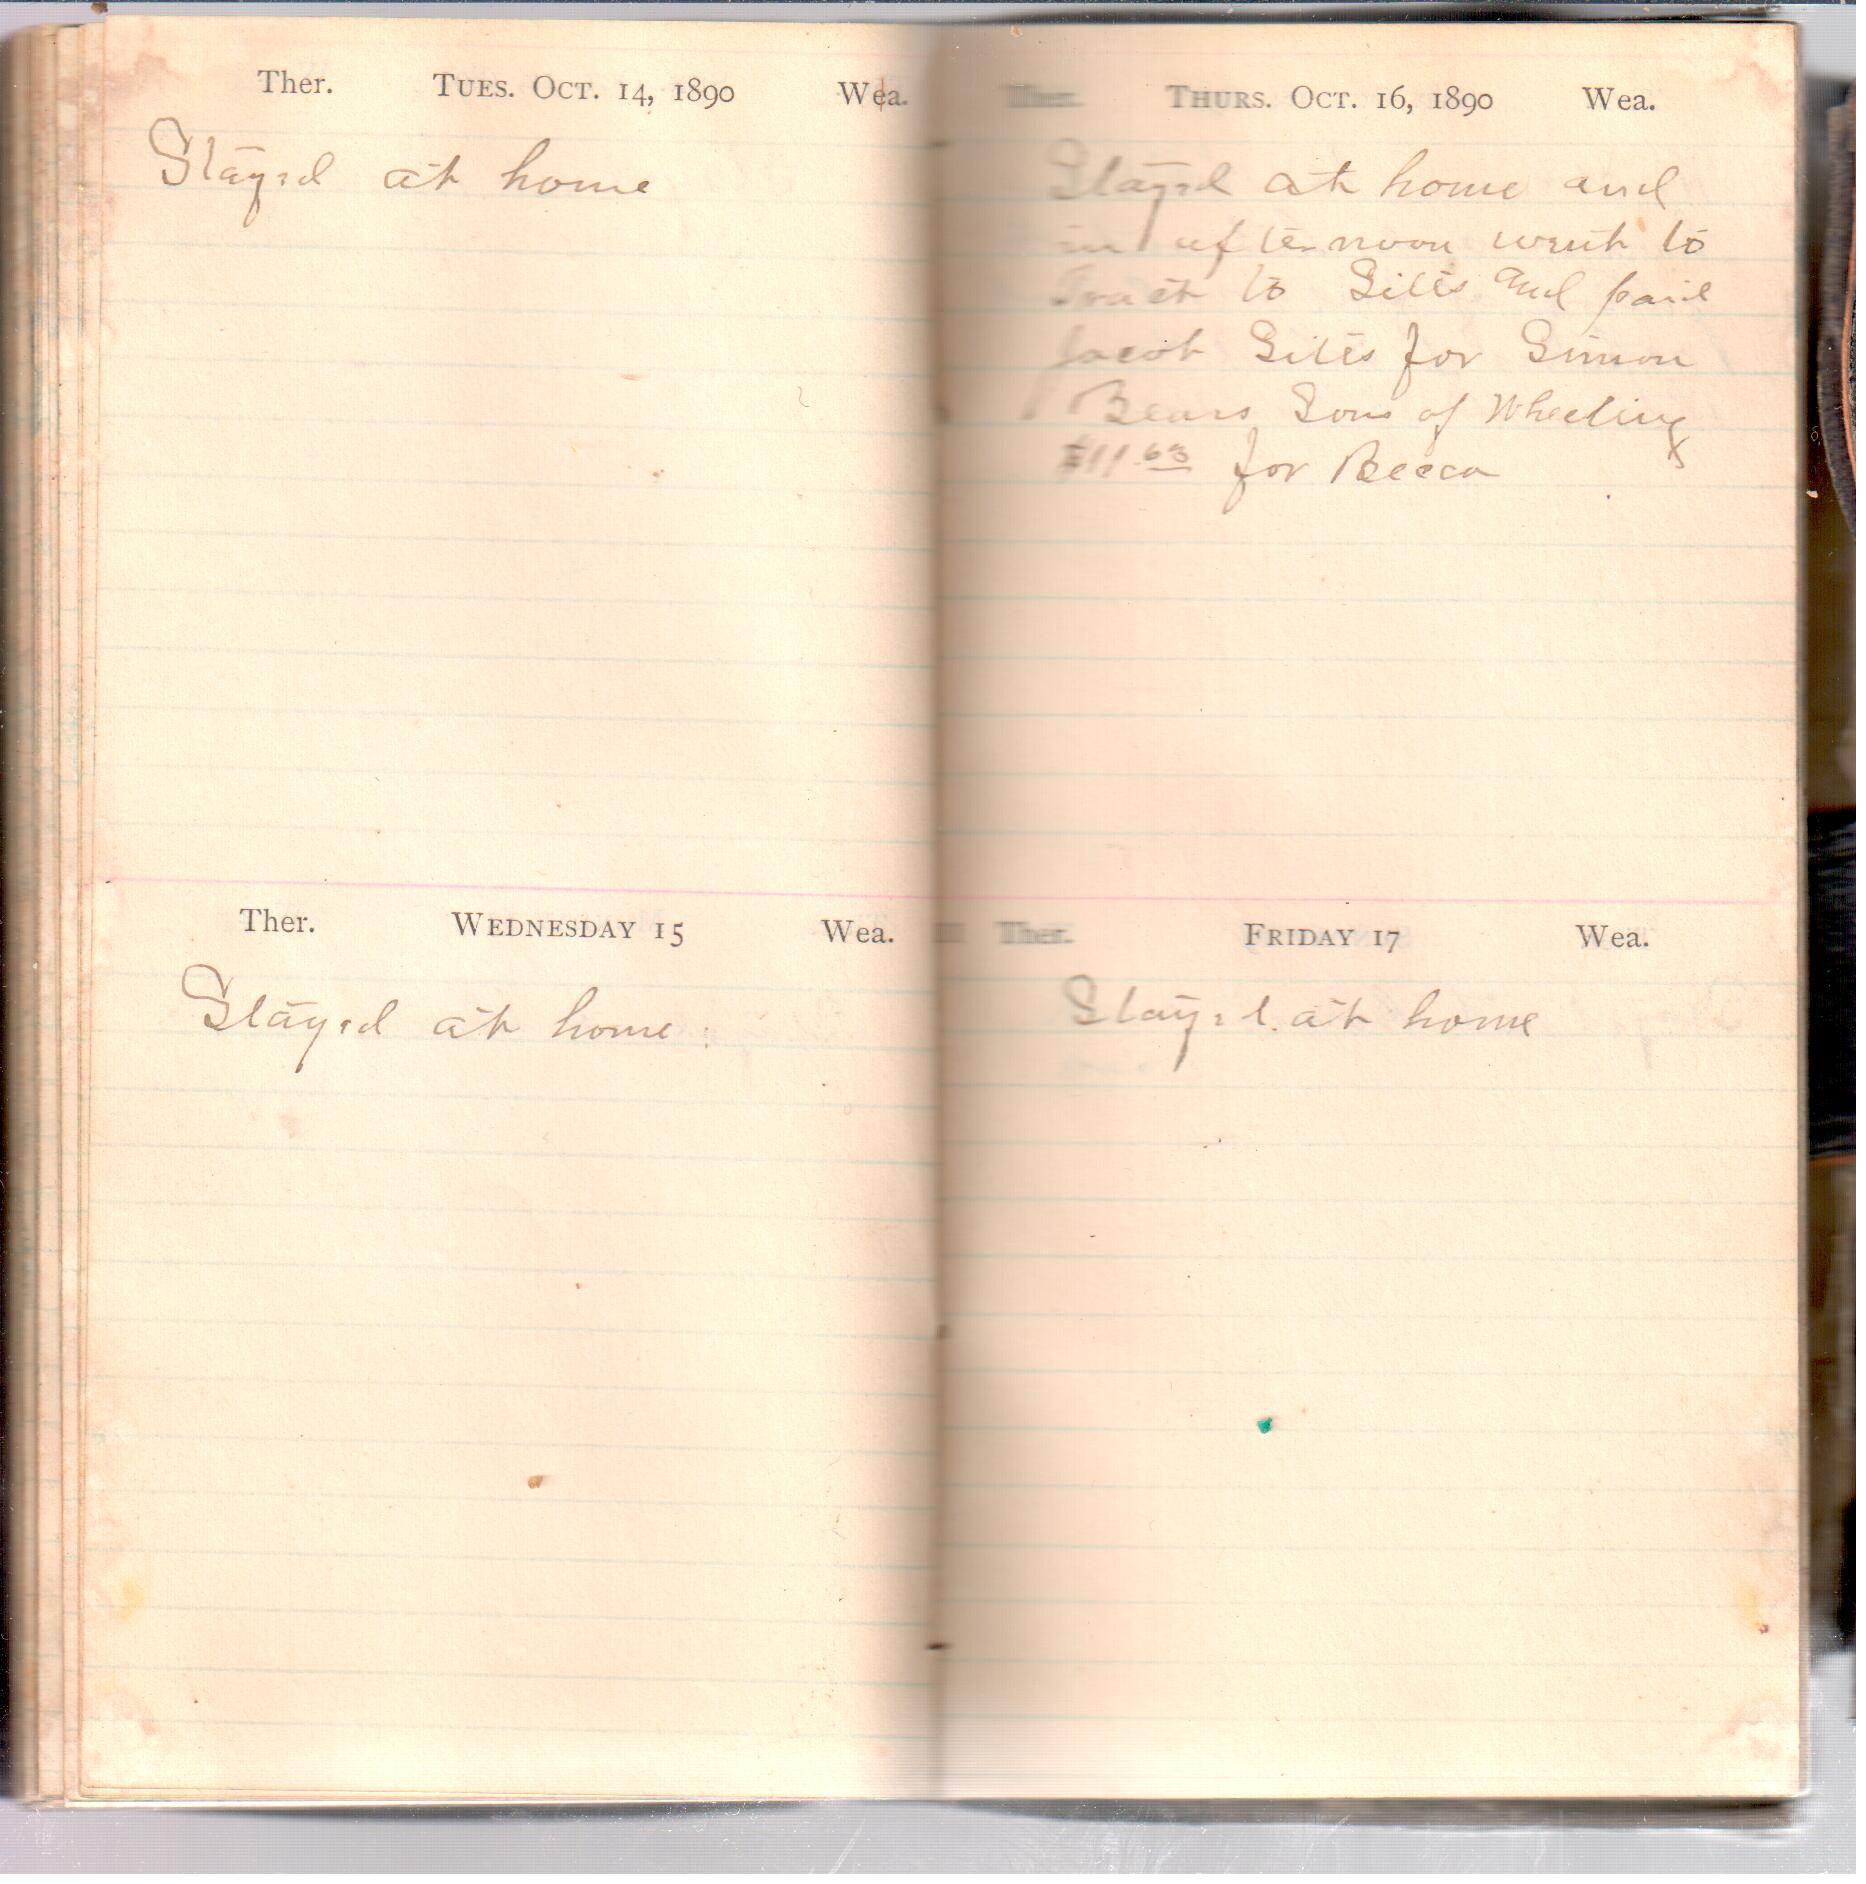 Ther. TUES. OCT. 14, 1890 Wea.
Stayed at home
Ther. WEDNESDAY 15 Wea.
Stayed at home
Ther. THURS. OCT. 16, 1890 Wea.
Stayed at home and
in afternoon went to
to Sites and paid
Jacob Sites for Simon
Bears Sons of Wheeling
$11.63 for Becca
Ther. FRIDAY 17 Wea.
Stayed at home